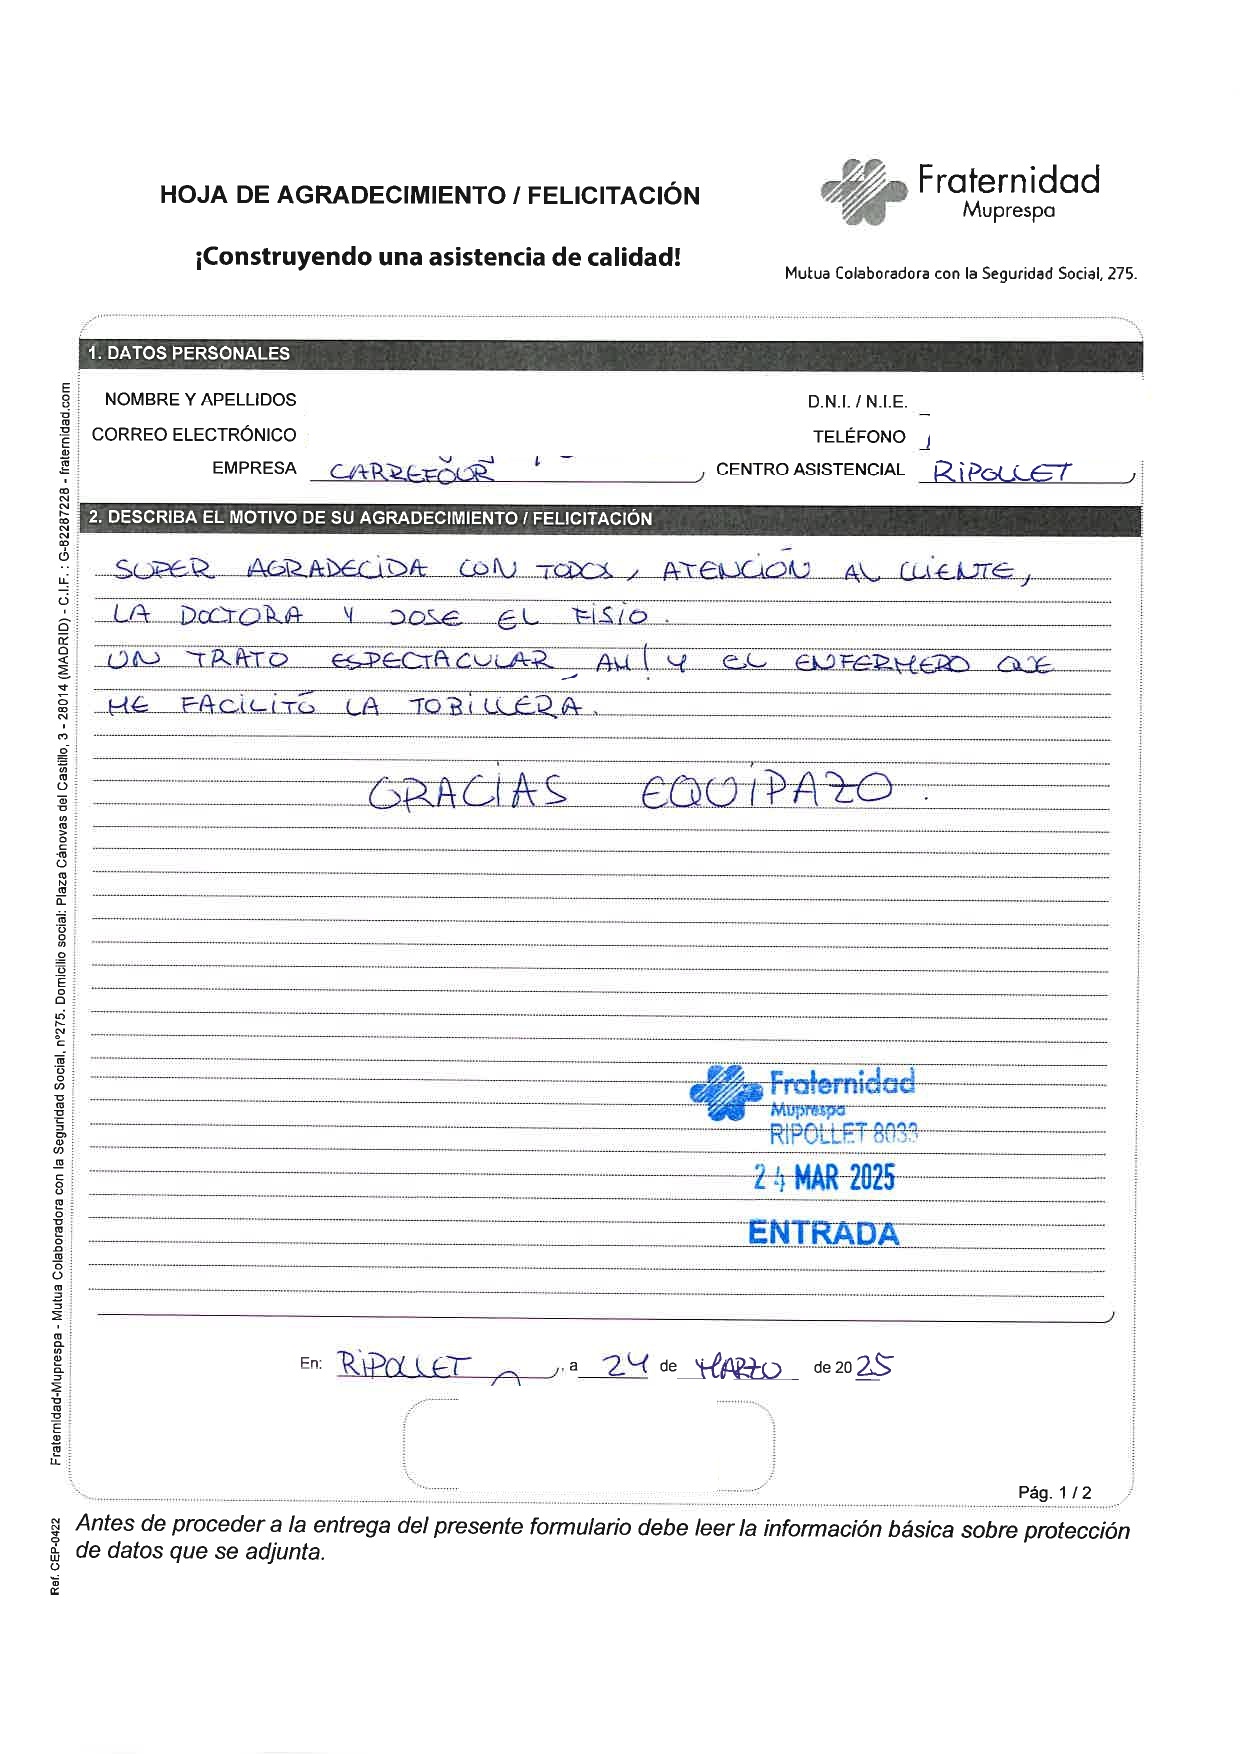 HOJA DE AGRADECIMIENTO / FELICITACIÓN
¡Construyendo una asistencia de calidad!
Fraternidad
Muprespa
Mutua Colaboradora con la Seguridad Social, 275.
1. DATOS PERSONALES
NOMBRE Y APELLIDOS
D.N.I. / N.I.E.
CORREO ELECTRÓNICO
TELÉFONO
EMPRESA CARREFOUR
CENTRO ASISTENCIAL RIPOLLET
2. DESCRIBA EL MOTIVO DE SU AGRADECIMIENTO / FELICITACIÓN
SUPER AGRADECIDA CON TODOS, ATENCIÓN AL CLIENTE,
LA DOCTORA Y JOSE EL FISIO.
UN TRATO ESPECTACULAR AH! Y EL ENFERMERO QUE
ME FACILITÓ LA TOBILLERA.
GRACIAS EQUIPAZO.
Fraternidad
Muprespa
RIPOLLET 8033
24 MAR 2025
ENTRADA
En: RIPOLLET, a 24 de MARZO de 2025
Pág. 1 / 2
Antes de proceder a la entrega del presente formulario debe leer la información básica sobre protección
de datos que se adjunta.
Fraternidad-Muprespa - Mutua Colaboradora con la Seguridad Social, nº275. Domicilio social: Plaza Cánovas del Castillo, 3 - 28014 (MADRID) - C.I.F. : G-82287228 - fraternidad.com
Ref. CEP-0422